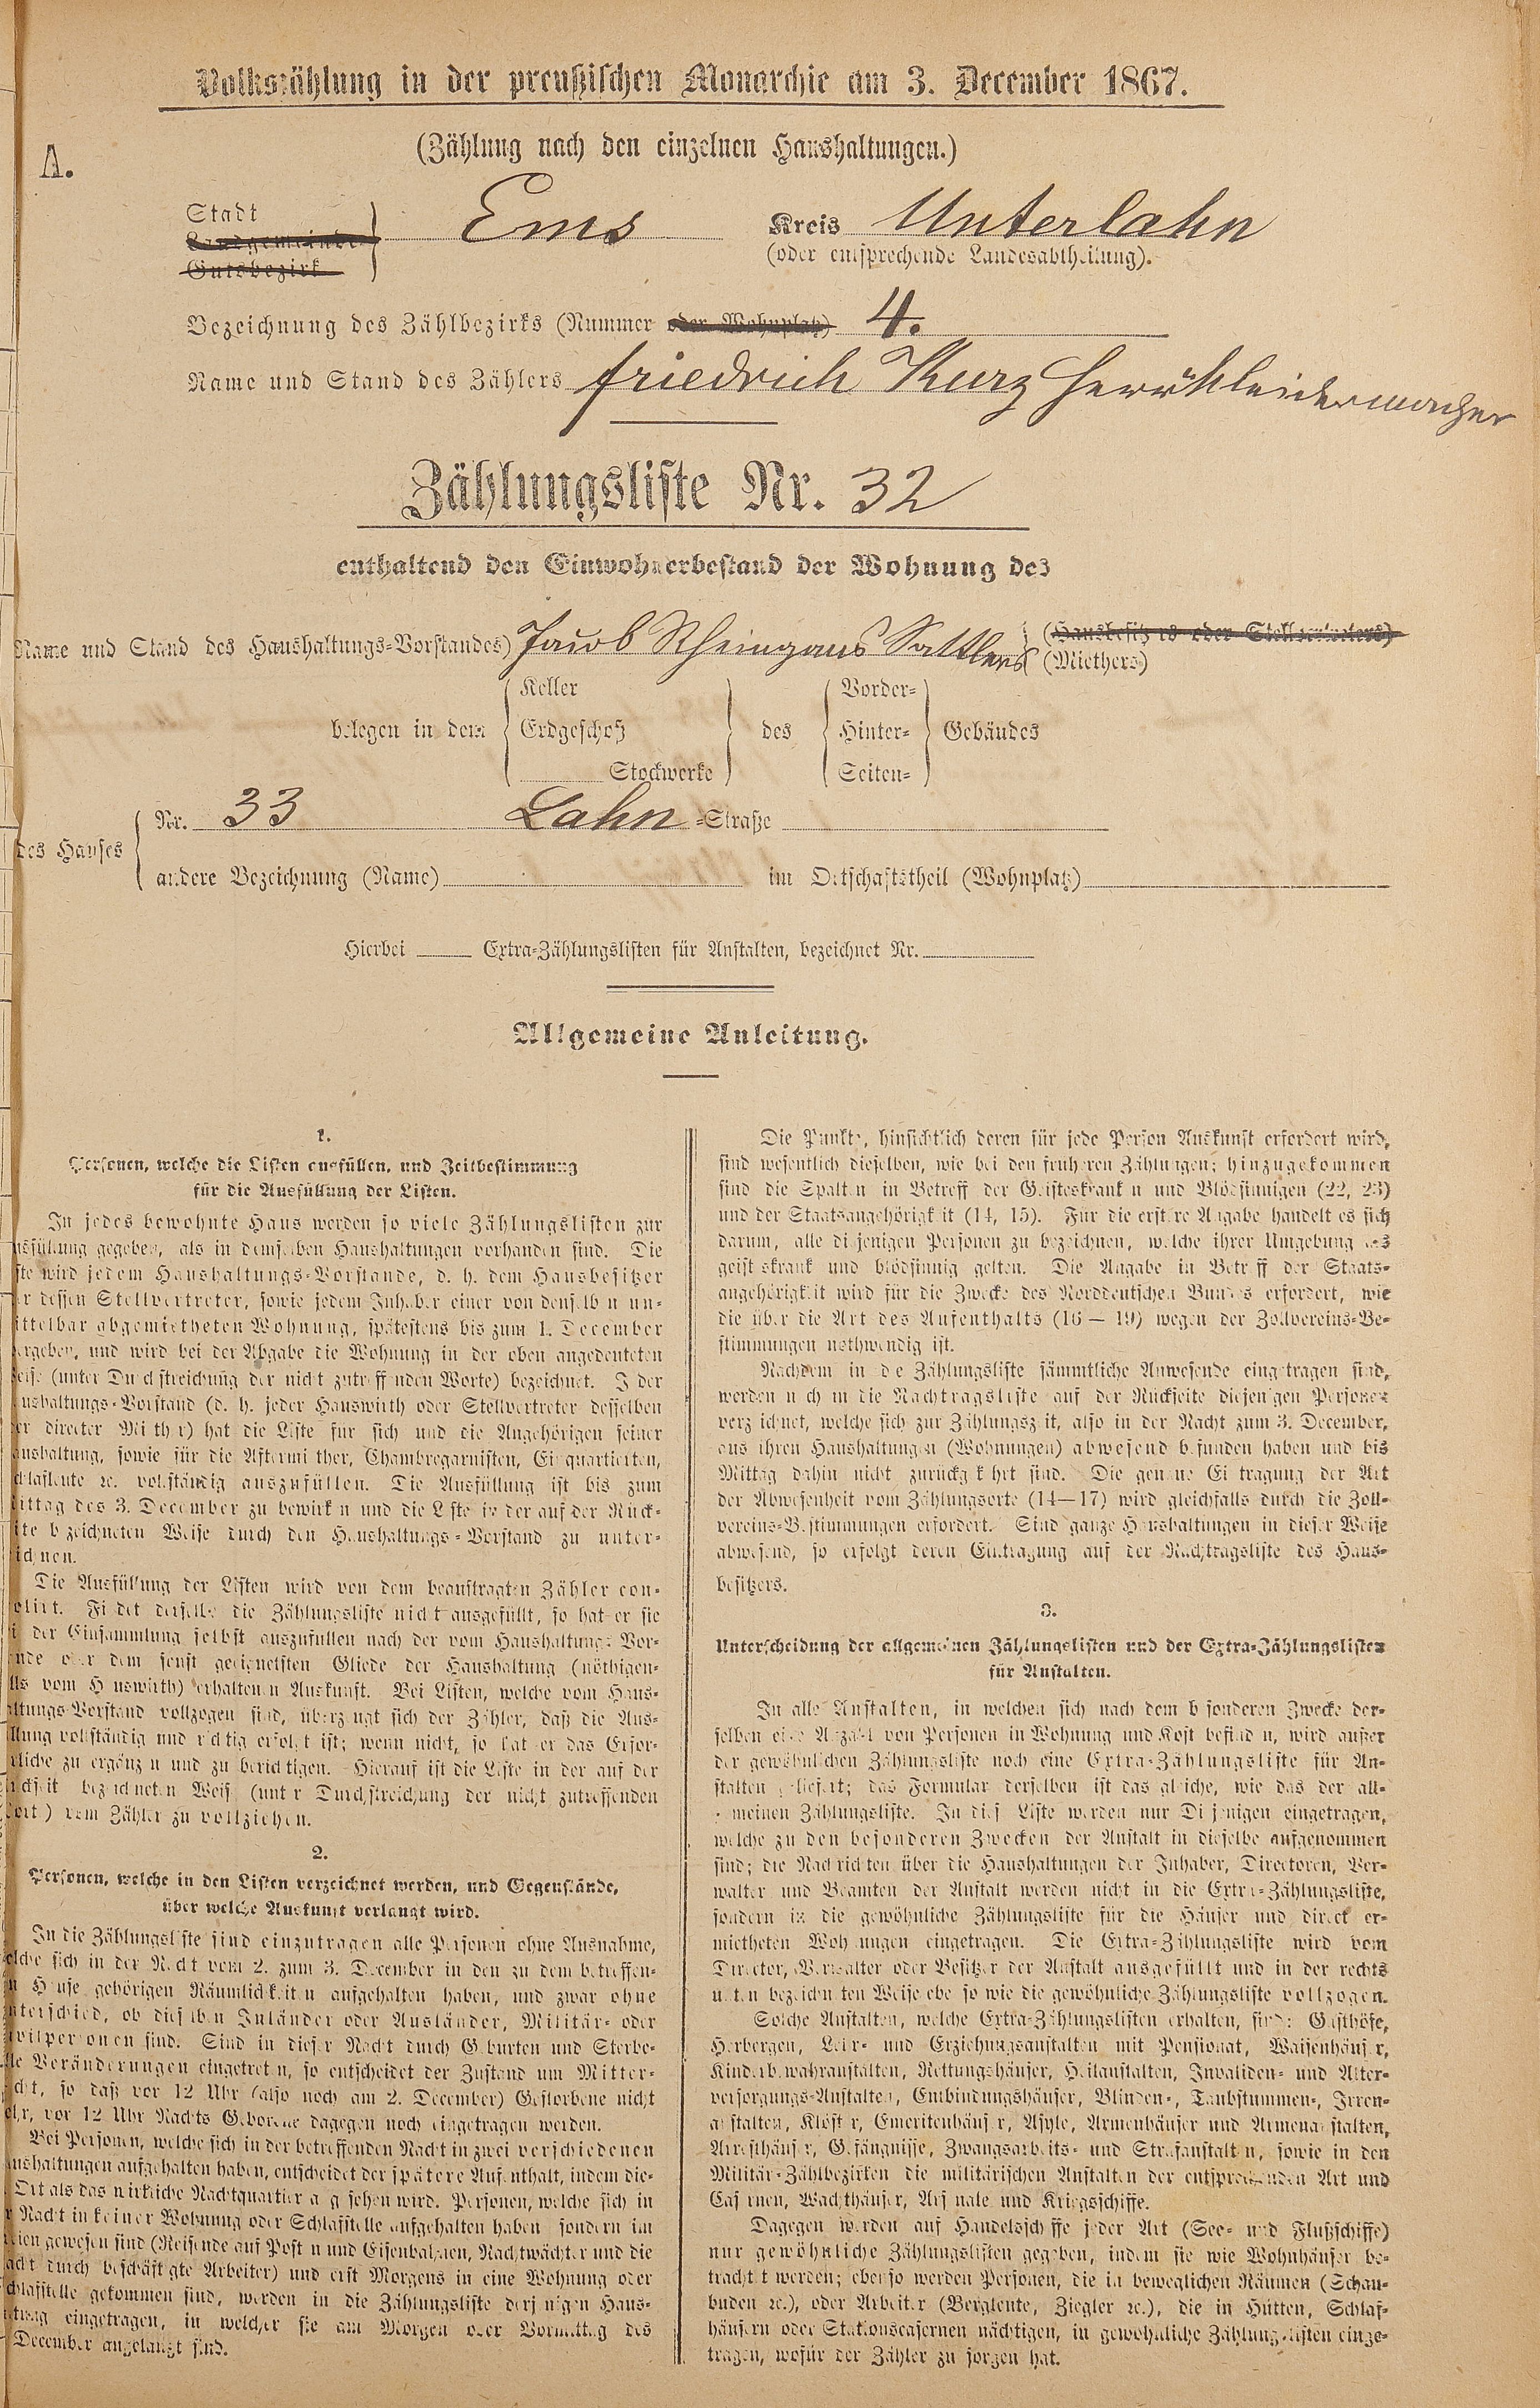 Volkszählung in der preußischen Monarchie am 3. December 1867.
(Zählung nach den einzelnen Haushaltungen.)
A.
Stadt
Landgemeinde
Gutsbezirk
Ems
Kreis Unterlahn
(oder entsprechende Landesabtheilung).
Bezeichnung des Zählbezirks (Nummer oder Wohnplatz) 4.
Name und Stand des Zählers Friedrich Kurz Herrnkleidermacher
Zählungsliste Nr. 32
enthaltend den Einwohnerbestand der Wohnung des
(Name und Stand des Haushaltungs-Vorstandes) Jacob Rheingans Sattlers
(Hausbesitzers oder Stellvertreters)
(Miethers)
belegen in dem
Keller
Erdgeschoß
Stockwerke
des
Vorder-
Hinter-
Seiten-
Gebäudes
des Hauses
Nr. 33 Lahn-Straße
andere Bezeichnung (Name) im Ortschaftstheil (Wohnplatz)
Hierbei Extra-Zählungslisten für Anstalten, bezeichnet Nr.
Allgemeine Anleitung.
1.
Personen, welche die Listen ausfüllen, und Zeitbestimmung
für die Ausfüllung der Listen.
In jedes bewohnte Haus werden so viele Zählungslisten zur
usfüllung gegeben, als in demselben Haushaltungen vorhanden sind. Die
ste wird jedem Haushaltungs-Vorstande, d. h. dem Hausbesitzer
er dessen Stellvertreter, sowie jedem Inhaber einer von denselben un-
ittelbar abgemietheten Wohnung, spätestens bis zum 1. December
ergeben, und wird bei der Abgabe die Wohnung in der oben angedeuteten
eise (unter Durchstreichung der nicht zutreffenden Worte) bezeichnet. Jeder
aushaltungs-Vorstand (d. h. jeder Hauswirth oder Stellvertreter desselben
er directer Miether) hat die Liste für sich und die Angehörigen seiner
aushaltung, sowie für die Aftermiether, Chambregarnisten, Einquartierten,
chlafleute ꝛc. vollständig auszufüllen. Die Ausfüllung ist bis zum
ittag des 3. December zu bewirken und die Liste in der auf der Rück-
ite bezeichneten Weise durch den Haushaltungs-Vorstand zu unter-
ichnen.
Die Ausfüllung der Listen wird von dem beauftragten Zähler con-
olirt. Findet derselbe die Zählungsliste nicht ausgefüllt, so hat er sie
i der Einsammlung selbst auszufüllen nach der vom Haushaltungs-Vor-
nde oder dem sonst geeignetsten Gliede der Haushaltung (nöthigen-
lls vom Hauswirth) erhaltenen Auskunft. Bei Listen, welche vom Haus-
ltungs-Vorstand vollzogen sind, überzeugt sich der Zähler, daß die Aus-
llung vollständig und richtig erfolgt ist; wenn nicht, so hat er das Erfor-
rliche zu ergänzen und zu berichtigen. Hierauf ist die Liste in der auf der
ckseite bezeichneten Weise (unter Durchstreichung der nicht zutreffenden
ort) vom Zähler zu vollziehen.
2.
Personen, welche in den Listen verzeichnet werden, und Gegenstände,
über welche Auskunft verlangt wird.
In die Zählungsliste sind einzutragen alle Personen ohne Ausnahme,
elche sich in der Nacht vom 2. zum 3. December in den zu dem betreffen-
n Hause gehörigen Räumlichkeiten aufgehalten haben, und zwar ohne
nterschied, ob dieselben Inländer oder Ausländer, Militär- oder
vilpersonen sind. Sind in dieser Nacht durch Geburten und Sterbe-
lle Veränderungen eingetreten, so entscheidet der Zustand um Mitter-
cht, so daß vor 12 Uhr (also noch am 2. December) Gestorbene nicht
ehr, vor 12 Uhr Nachts Geborene dagegen noch eingetragen werden.
Bei Personen, welche sich in der betreffenden Nacht in zwei verschiedenen
aushaltungen aufgehalten haben, entscheidet der spätere Aufenthalt, indem die-
Ort als das wirkliche Nachtquartier angesehen wird. Personen, welche sich in
r Nacht in keiner Wohnung oder Schlafstelle aufgehalten haben, sondern im
eien gewesen sind (Reisende auf Posten und Eisenbahnen, Nachtwächter und die
acht durch beschäftigte Arbeiter) und erst Morgens in eine Wohnung oder
chlafstelle gekommen sind, werden in die Zählungsliste derjenigen Haus-
ltung eingetragen, in welcher sie am Morgen oder Vormittag des
December angelangt sind.
Die Punkte, hinsichtlich deren für jede Person Auskunft erfordert wird,
sind wesentlich dieselben, wie bei den früheren Zählungen; hinzugekommen
sind die Spalten in Betreff der Geisteskranken und Blödsinnigen (22, 23)
und der Staatsangehörigkeit (14, 15). Für die erstere Angabe handelt es sich
darum, alle diejenigen Personen zu bezeichnen, welche ihrer Umgebung als
geisteskrank und blödsinnig gelten. Die Angabe in Betreff der Staats-
angehörigkeit wird für die Zwecke des Norddeutschen Bundes erfordert, wie
die über die Art des Aufenthalts (16 — 19) wegen der Zollvereins-Be-
stimmungen nothwendig ist.
Nachdem in die Zählungsliste sämmtliche Anwesende eingetragen sind,
werden noch in die Nachtragsliste auf der Rückseite diejenigen Personen
verzeichnet, welche sich zur Zählungszeit, also in der Nacht zum 3. December,
aus ihren Haushaltungen (Wohnungen) abwesend befunden haben und bis
Mittag dahin nicht zurückgekehrt sind. Die genaue Eintragung der Art
der Abwesenheit vom Zählungsorte (14—17) wird gleichfalls durch die Zoll-
vereins-Bestimmungen erfordert. Sind ganze Haushaltungen in dieser Weise
abwesend, so erfolgt deren Eintragung auf der Nachtragsliste des Haus-
besitzers.
3.
Unterscheidung der allgemeinen Zählungslisten und der Extra-Zählungslisten
für Anstalten.
In alle Anstalten, in welchen sich nach dem besonderen Zwecke der-
selben eine Anzahl von Personen in Wohnung und Kost befinden, wird außer
der gewöhnlichen Zählungsliste noch eine Extra-Zählungsliste für An-
stalten geliefert; das Formular derselben ist das gleiche, wie das der all-
gemeinen Zählungsliste. In diese Liste werden nur Diejenigen eingetragen,
welche zu den besonderen Zwecken der Anstalt in dieselbe aufgenommen
sind; die Nachrichten über die Haushaltungen der Inhaber, Directoren, Ver-
walter und Beamten der Anstalt werden nicht in die Extra-Zählungsliste,
sondern in die gewöhnliche Zählungsliste für die Häuser und direct er-
mietheten Wohnungen eingetragen. Die Extra-Zählungsliste wird vom
Director, Verwalter oder Besitzer der Anstalt ausgefüllt und in der rechts
unten bezeichneten Weise ebenso wie die gewöhnliche Zählungsliste vollzogen.
Solche Anstalten, welche Extra-Zählungslisten erhalten, sind: Gasthöfe,
Herbergen, Lehr- und Erziehungsanstalten mit Pensionat, Waisenhäuser,
Kinderbewahranstalten, Rettungshäuser, Heilanstalten, Invaliden- und Alter-
versorgungs-Anstalten, Entbindungshäuser, Blinden-, Taubstummen-, Irren-
anstalten, Klöster, Emeritenhäuser, Asyle, Armenhäuser und Armenanstalten,
Arresthäuser, Gefängnisse, Zwangsarbeits- und Strafanstalten, sowie in den
Militär-Zählbezirken die militärischen Anstalten der entsprechenden Art und
Casernen, Wachthäuser, Arsenale und Kriegsschiffe.
Dagegen werden auf Handelsschiffe jeder Art (See- und Flußschiffe)
nur gewöhnliche Zählungslisten gegeben, indem sie wie Wohnhäuser be-
trachtet werden; ebenso werden Personen, die in beweglichen Räumen (Schau-
buden ꝛc.), oder Arbeiter (Bergleute, Ziegler ꝛc.), die in Hütten, Schlaf-
häusern oder Stationscasernen nächtigen, in gewöhnliche Zählungslisten einge-
tragen, wofür der Zähler zu sorgen hat.